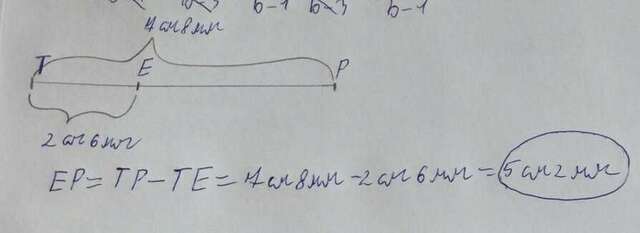 b-1 b-3 b-1
7см8мм
T E P
2см6мм
EP=TP-TE=7см8мм-2см6мм=5см2мм